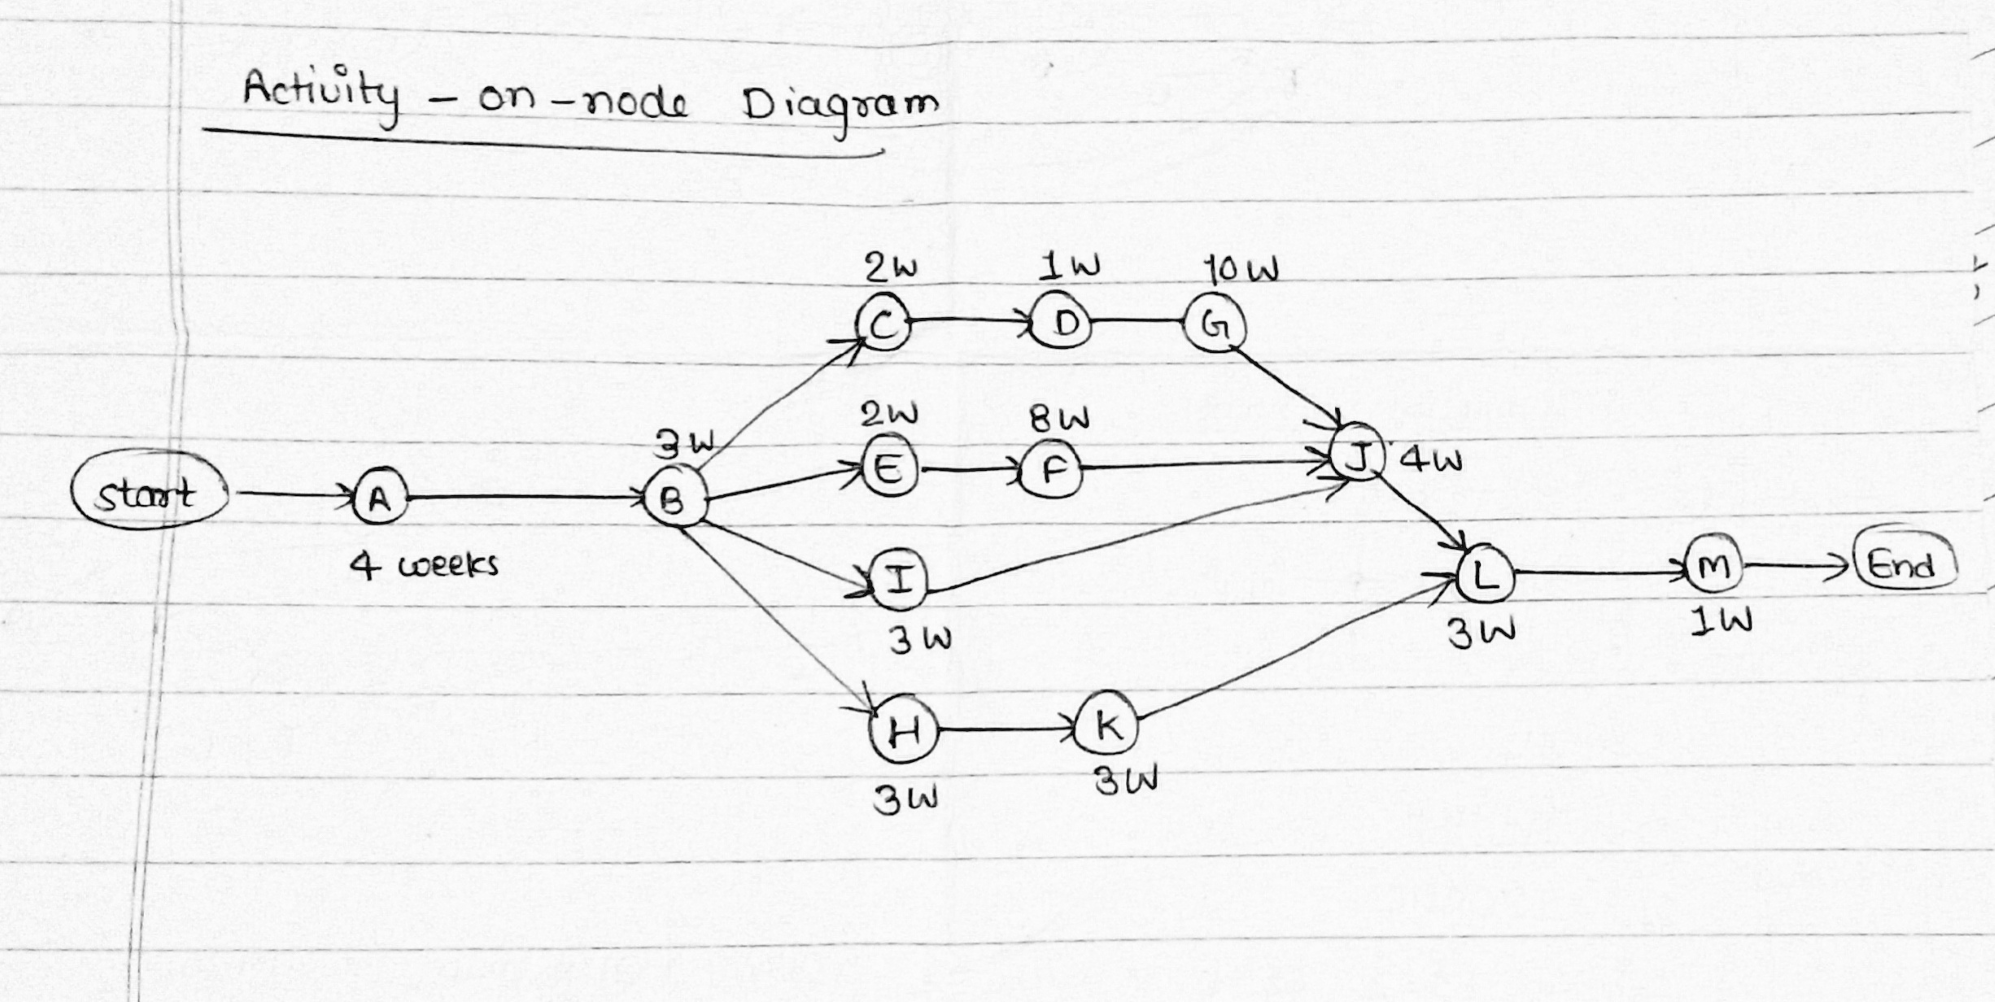 Activity - on - node Diagram
2W 1W 10W
C D G
2W 8W
3W
E F J 4W
start A B
4 weeks
I L M End
3W 3W 1W
H K
3W 3W